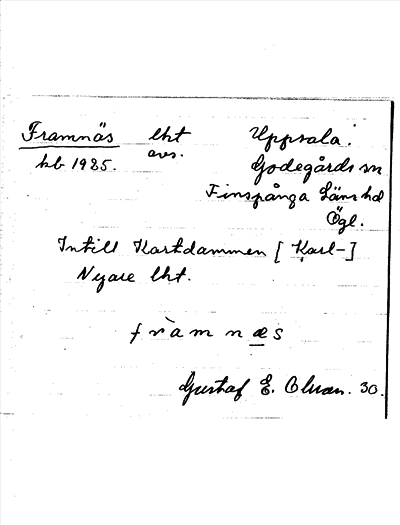 Framnäs lht Uppsala.
hb 1925. avs. Godegårds sn
Finspånga Läns hd
Ögl.
Intill Kartdammen [ Karl-]
Nyare lht.
fràmnæs
Gustaf E. Olsson. 30.